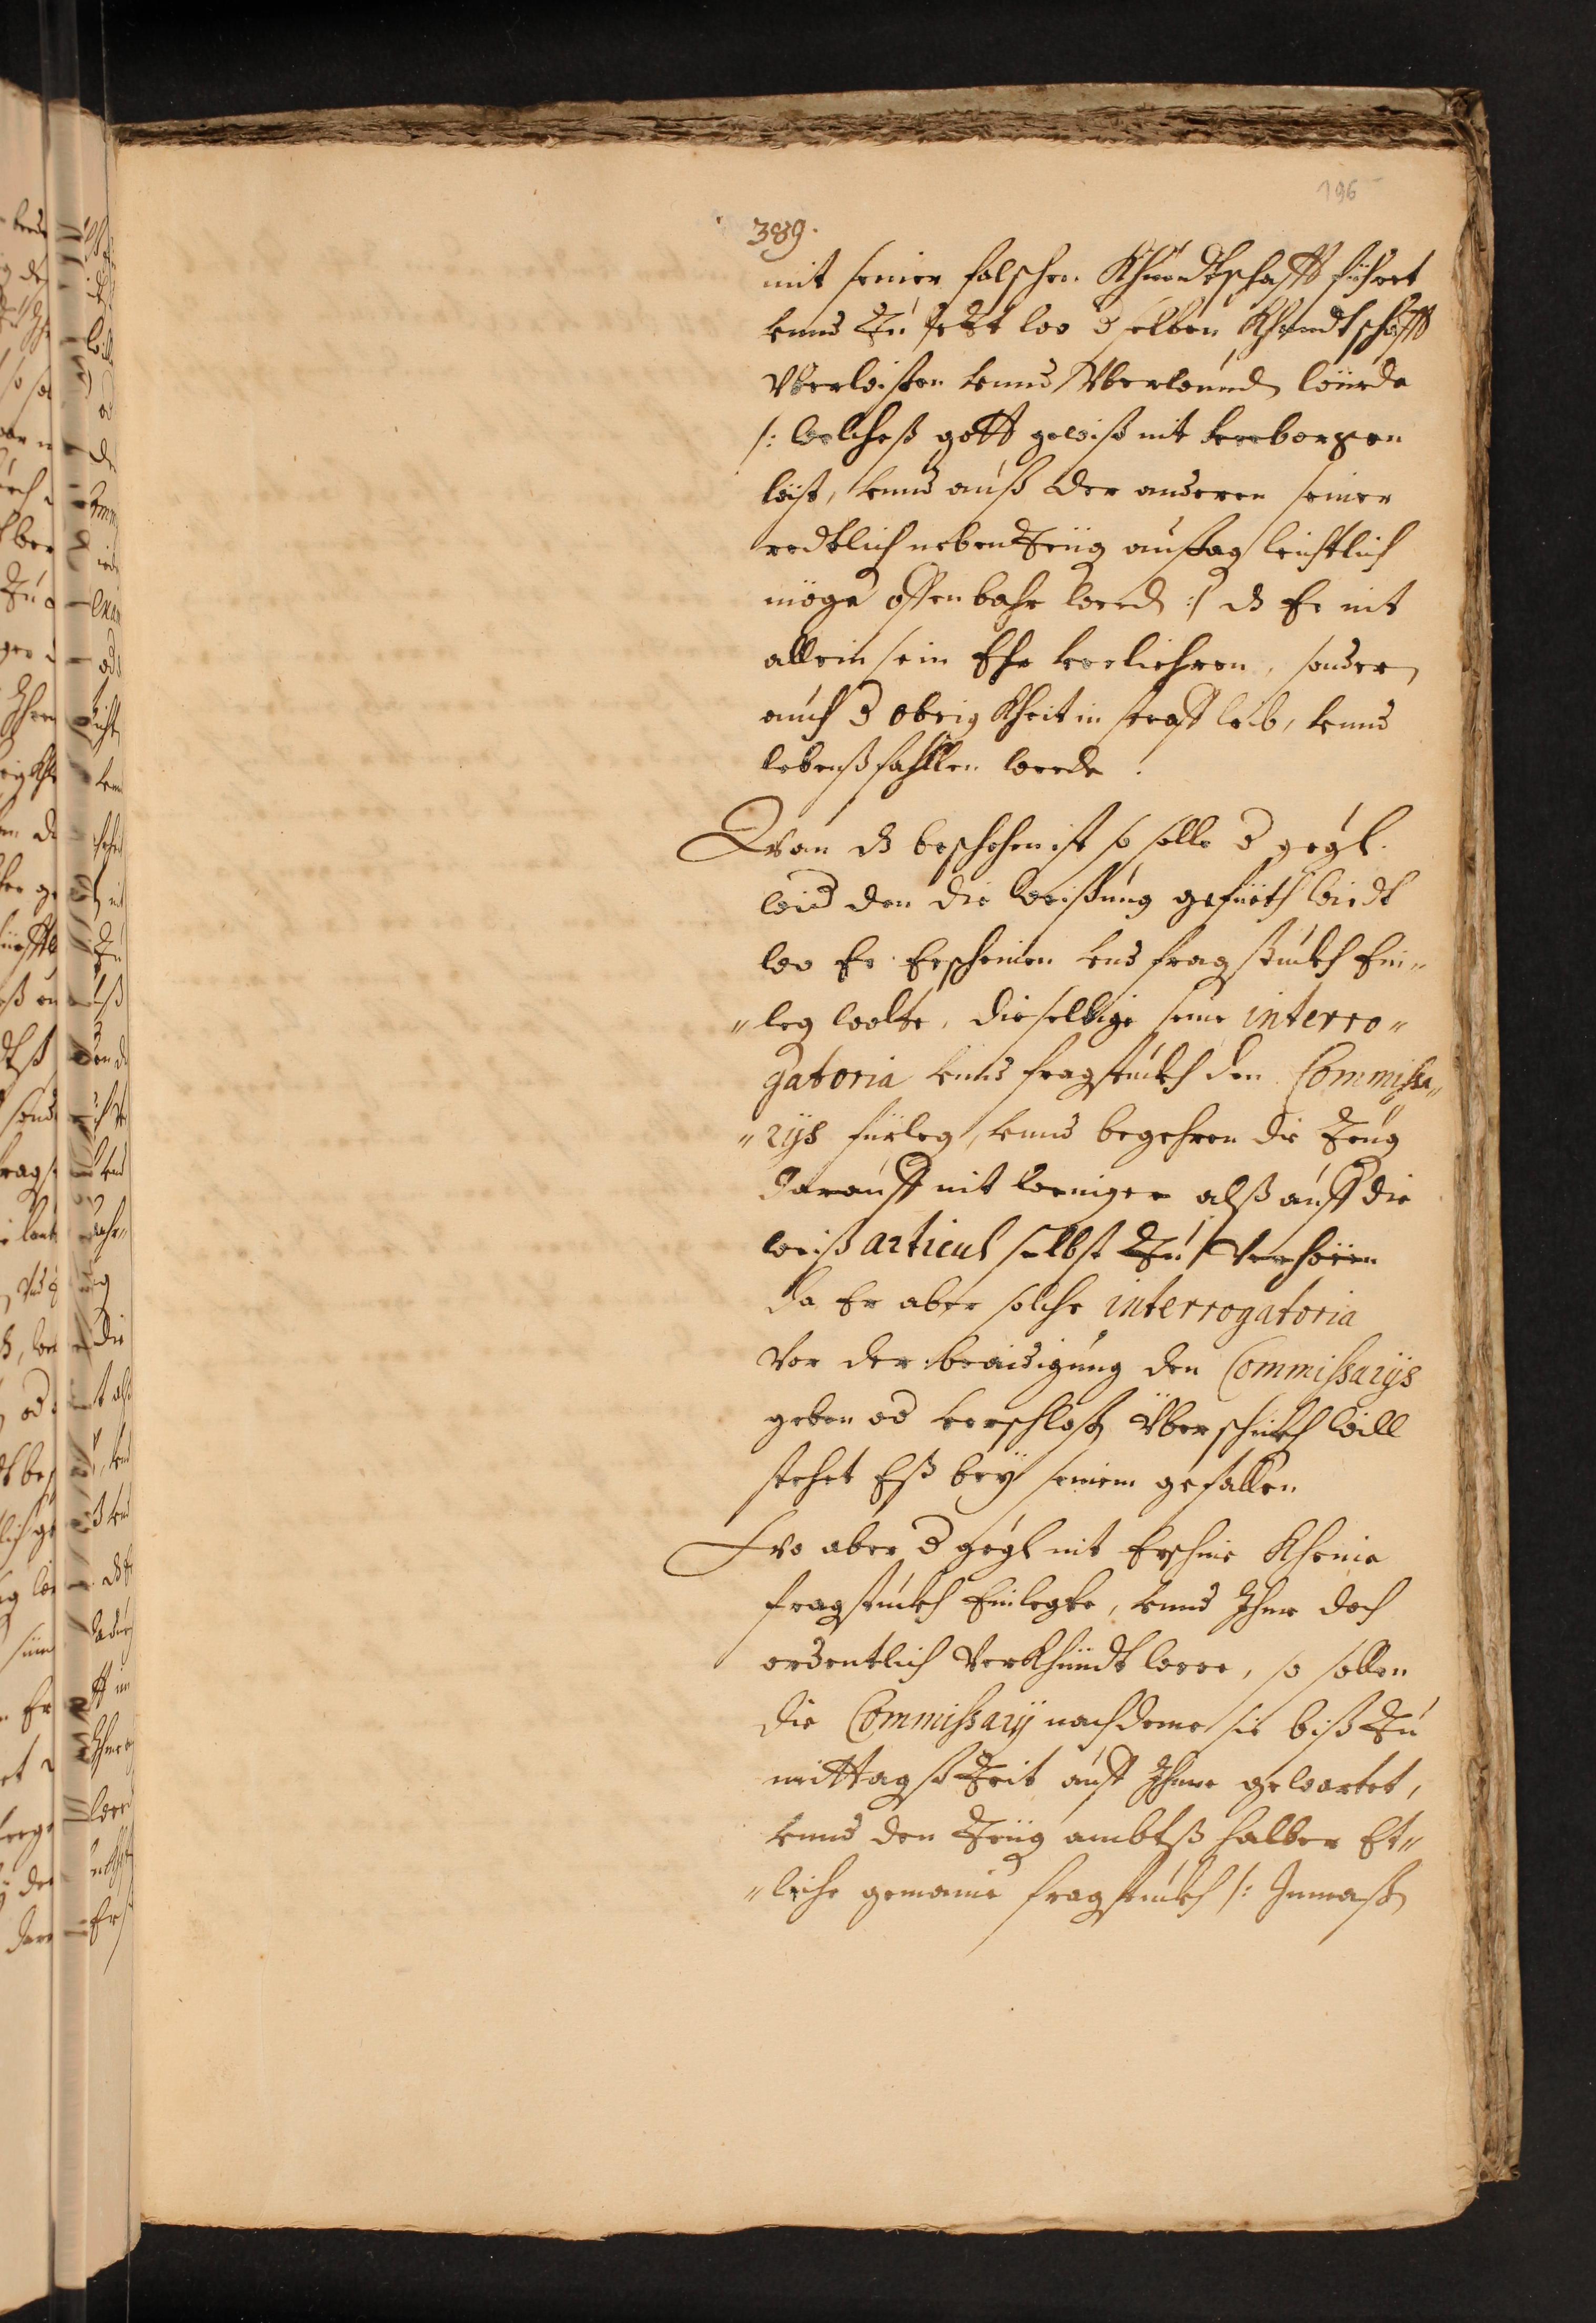 196
389.
mit seiner falschen Khundtschafft führet
vnnd Zu letzt wo d selben Khundtschafft
Vberwisen vnnd Vberwund würde
/: welcheß gott gewiß nit verborgen
läst, vnnd auß der anderen seiner
redtlich neben Zeüg aussag leichtlich
möge offenbahr werd :/ dz Er nit
allein sein Ehr verliehren, sonder
auch d obrigKheit in straff leib, vnnd
lebenß fahllen werde.
Wan dz beschehen ist so solle d gegl.
wid den die weißung gefürth wirdt
wo Er Erscheinen vnd fragstuckh Ein„
„leg wolte, dieselbige seine interro„
gatoria vnnd fragstuckh den Commissa„
„rijs fürleg, vnnd begehren die Zeug
darauff nit weniger alß auff die
weiß articul selbst Zu Verhören
da Er aber solche interrogatoria
Vor der beaidigung den Commissarijs
geben od verschloss Überschickh will
stehet Eß bey seinem gefallen
Wo aber d gegl nit Erschine Kheine
fragstuckh Einlegte, vnnd Ihme doch
ordentlich VerKhündt were, so sollen
die Commissarij nachdeme sie biß Zu
mittagß Zeit auff Ihme gewartet,
vnnd den Zeüg ambtß halber Et„
„liche gemaine fragstuckh /: Inmaß